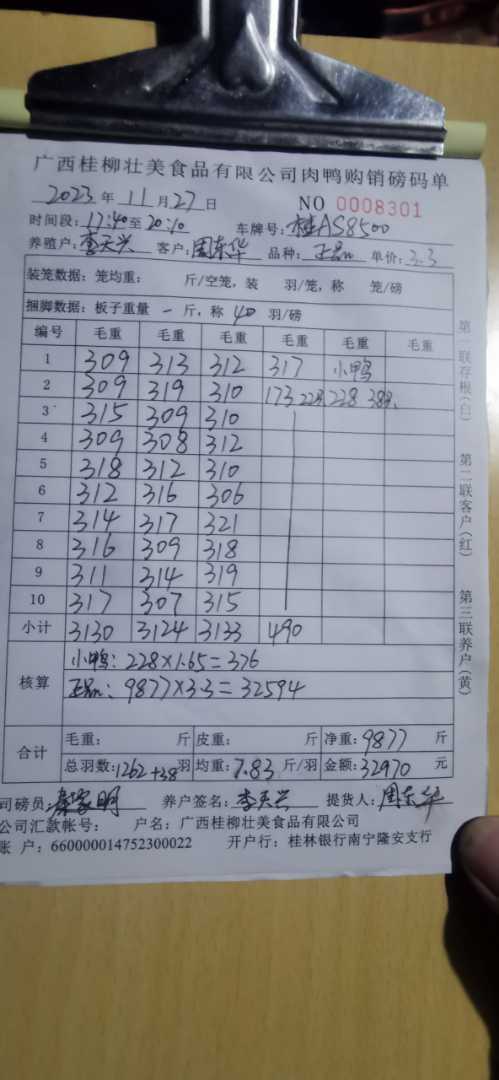 广西桂柳壮美食品有限公司肉鸭购销磅码单
2023年11月27日 NO 0008301
时间段:17:40至20:10 车牌号:桂AS8500
养殖户:李天兴 客户:周东华 品种:正品 单价:3.3
装笼数据:笼均重: 斤/空笼,装 羽/笼,称 笼/磅
捆脚数据:板子重量 一 斤,称 40 羽/磅
编号 毛重 毛重 毛重 毛重 毛重 毛重
1 309 313 312 317 小鸭
2 309 319 310 173 22只 228 38只
3 315 309 310
4 309 308 312
5 318 312 310
6 312 316 306
7 314 317 321
8 316 309 318
9 311 314 319
10 317 307 315
小计 3130 3124 3133 490
核算 小鸭:228×1.65=376
正品:9877×3.3=32594
合计 毛重: 斤 皮重: 斤 净重:9877 斤
总羽数:1262+38羽 均重:7.83斤/羽 金额:32970 元
司磅员: 家明 养户签名:李天兴 提货人:周东华
公司汇款帐号: 户名:广西桂柳壮美食品有限公司
账 户:660000014752300022 开户行:桂林银行南宁隆安支行
第一联存根(白)
第二联客户(红)
第三联养户(黄)